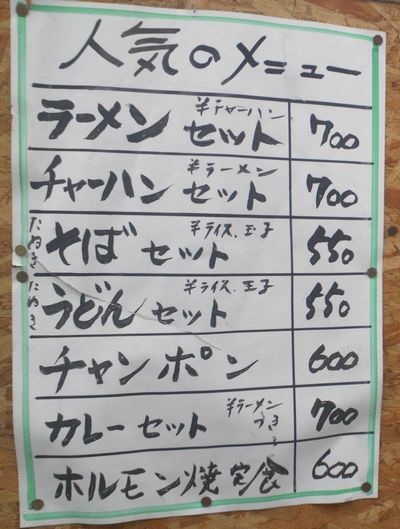 人気のメニュー
ラーメンセット 半チャーハン 700
チャーハンセット 半ラーメン 700
たぬき そばセット 半ライス、玉子 550
たぬき うどんセット 半ライス、玉子 550
チャンポン 600
カレーセット 半ラーメンつき 700
ホルモン焼定食 600